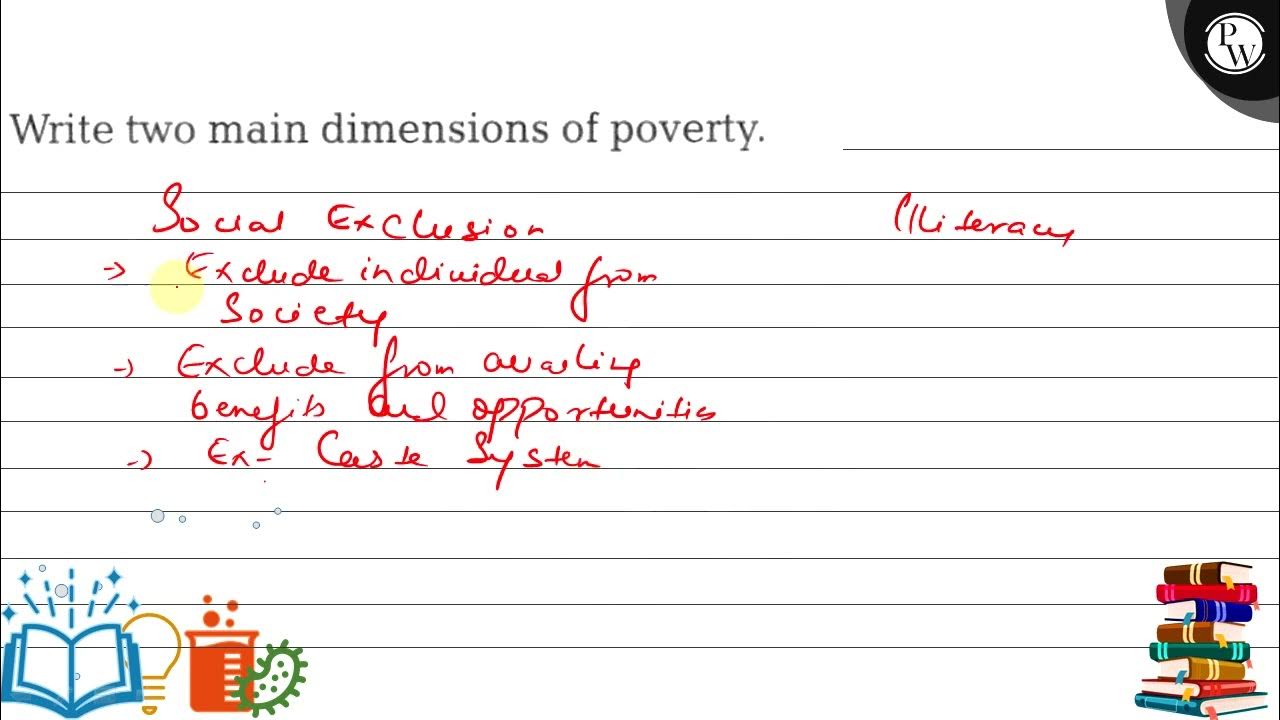 PW
Write two main dimensions of poverty.
Social Exclusion
Illiteracy
→ Exclude individual from
Society
→ Exclude from availing
benefits and opportunities
→ Ex- Caste System